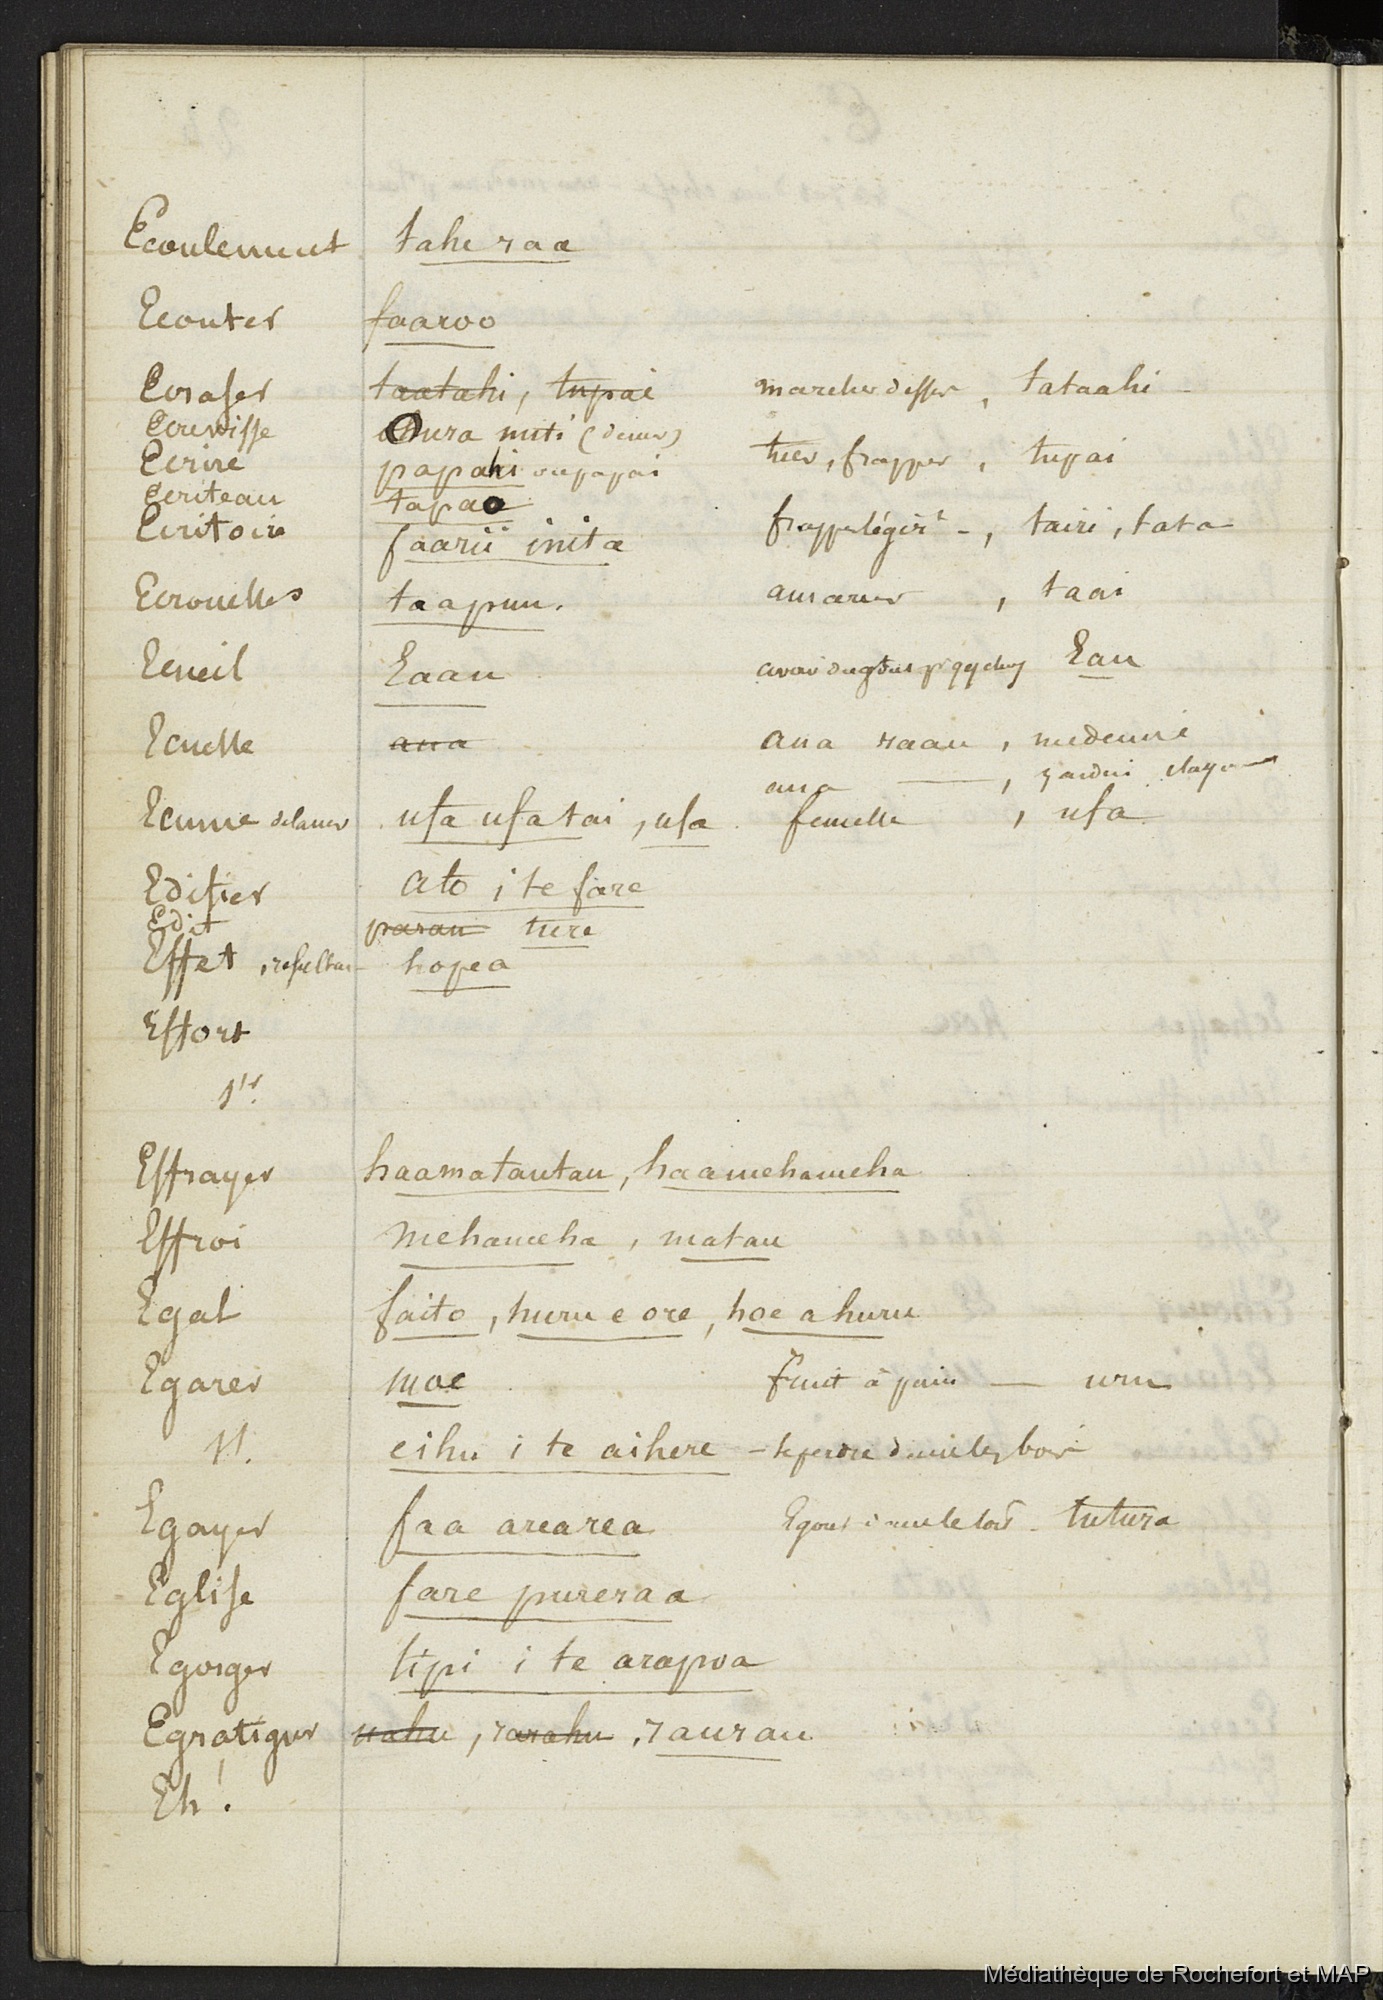 Ecoulement tahe raa
Ecouter faaroo
Ecraser taatahi, tupai marcher dessus, tataahi
Ecrevisse Oura miti (de mer)
Ecrire papahi ou papai tuer, frapper, tupai
Ecriteau tapao
Ecritoire faarii inita frapper légèrt -, tairi, tata
Ecrouelles taapuu. amarrer, taai
Ecueil Eaau Eau
Ecuelle aua aua raau, medecine
aua —, jardin
Ecume de la mer ufa ufa tai, ufa femelle, ufa
Edifier ato i te fare
Edit parau ture
Effet, resultat hopea
Effort
Effrayer haamatautau, haamehameha
Effroi mehameha, matau
Egal faito, huru e ore, hoe a huru
Egarer moe fruit à pain — uru
eihu i te aihere - se perdre dans les bois
Egayer faa arearea Egout tutura
Eglise fare pureraa
Egorger tipi i te arapoa
Egratigner uahu, rarahu, raurau
Eh!
Médiathèque de Rochefort et MAP